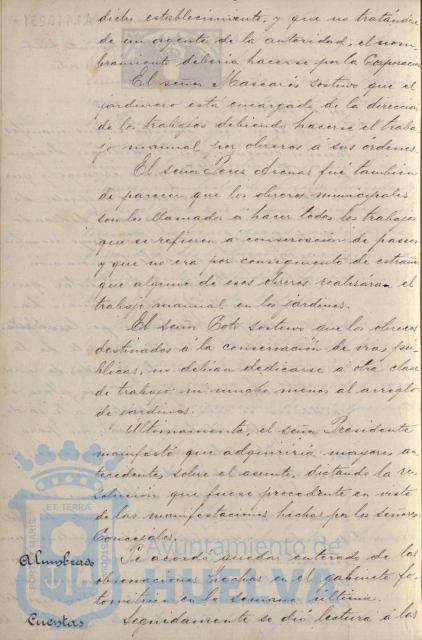 dicho establecimiento, y que no tratándose
de un agente de la autoridad, el nom-
bramiento debería hacerse por la Corporación
El señor Mascarós sostuvo que el
jardinero está encargado de la dirección
de los trabajos debiendo hacerse el traba-
jo manual por obreros á sus órdenes.
El señor Perez Arenas fué también
de parecer que los obreros municipales
son los llamados á hacer todos los trabajos
que se refieren á conservación de paseos
y que no era por consiguiente de extrañar
que alguno de esos obreros realizára el
trabajo manual en los jardines.
El señor Coto sostuvo que los obreros
destinados á la conservación de vías pú-
blicas, no debían dedicarse á otra clase
de trabajo ni mucho menos al arreglo
de jardines.
Ultimamente, el señor Presidente
manifestó que adquiriría mayores an-
tecedentes sobre el asunto, dictando la re-
solución que fuere procedente en vista
de las manifestaciones hechas por los señores
Concejales.
Alumbrado Se acordó quedar enterado de las
observaciones hechas en el gabinete fo-
tométrico en la semana última.
Cuentas Seguidamente se dió lectura á las
Ayuntamiento de
HUELVA
PORTUS MARIS ET TERRAE CUSTODIA